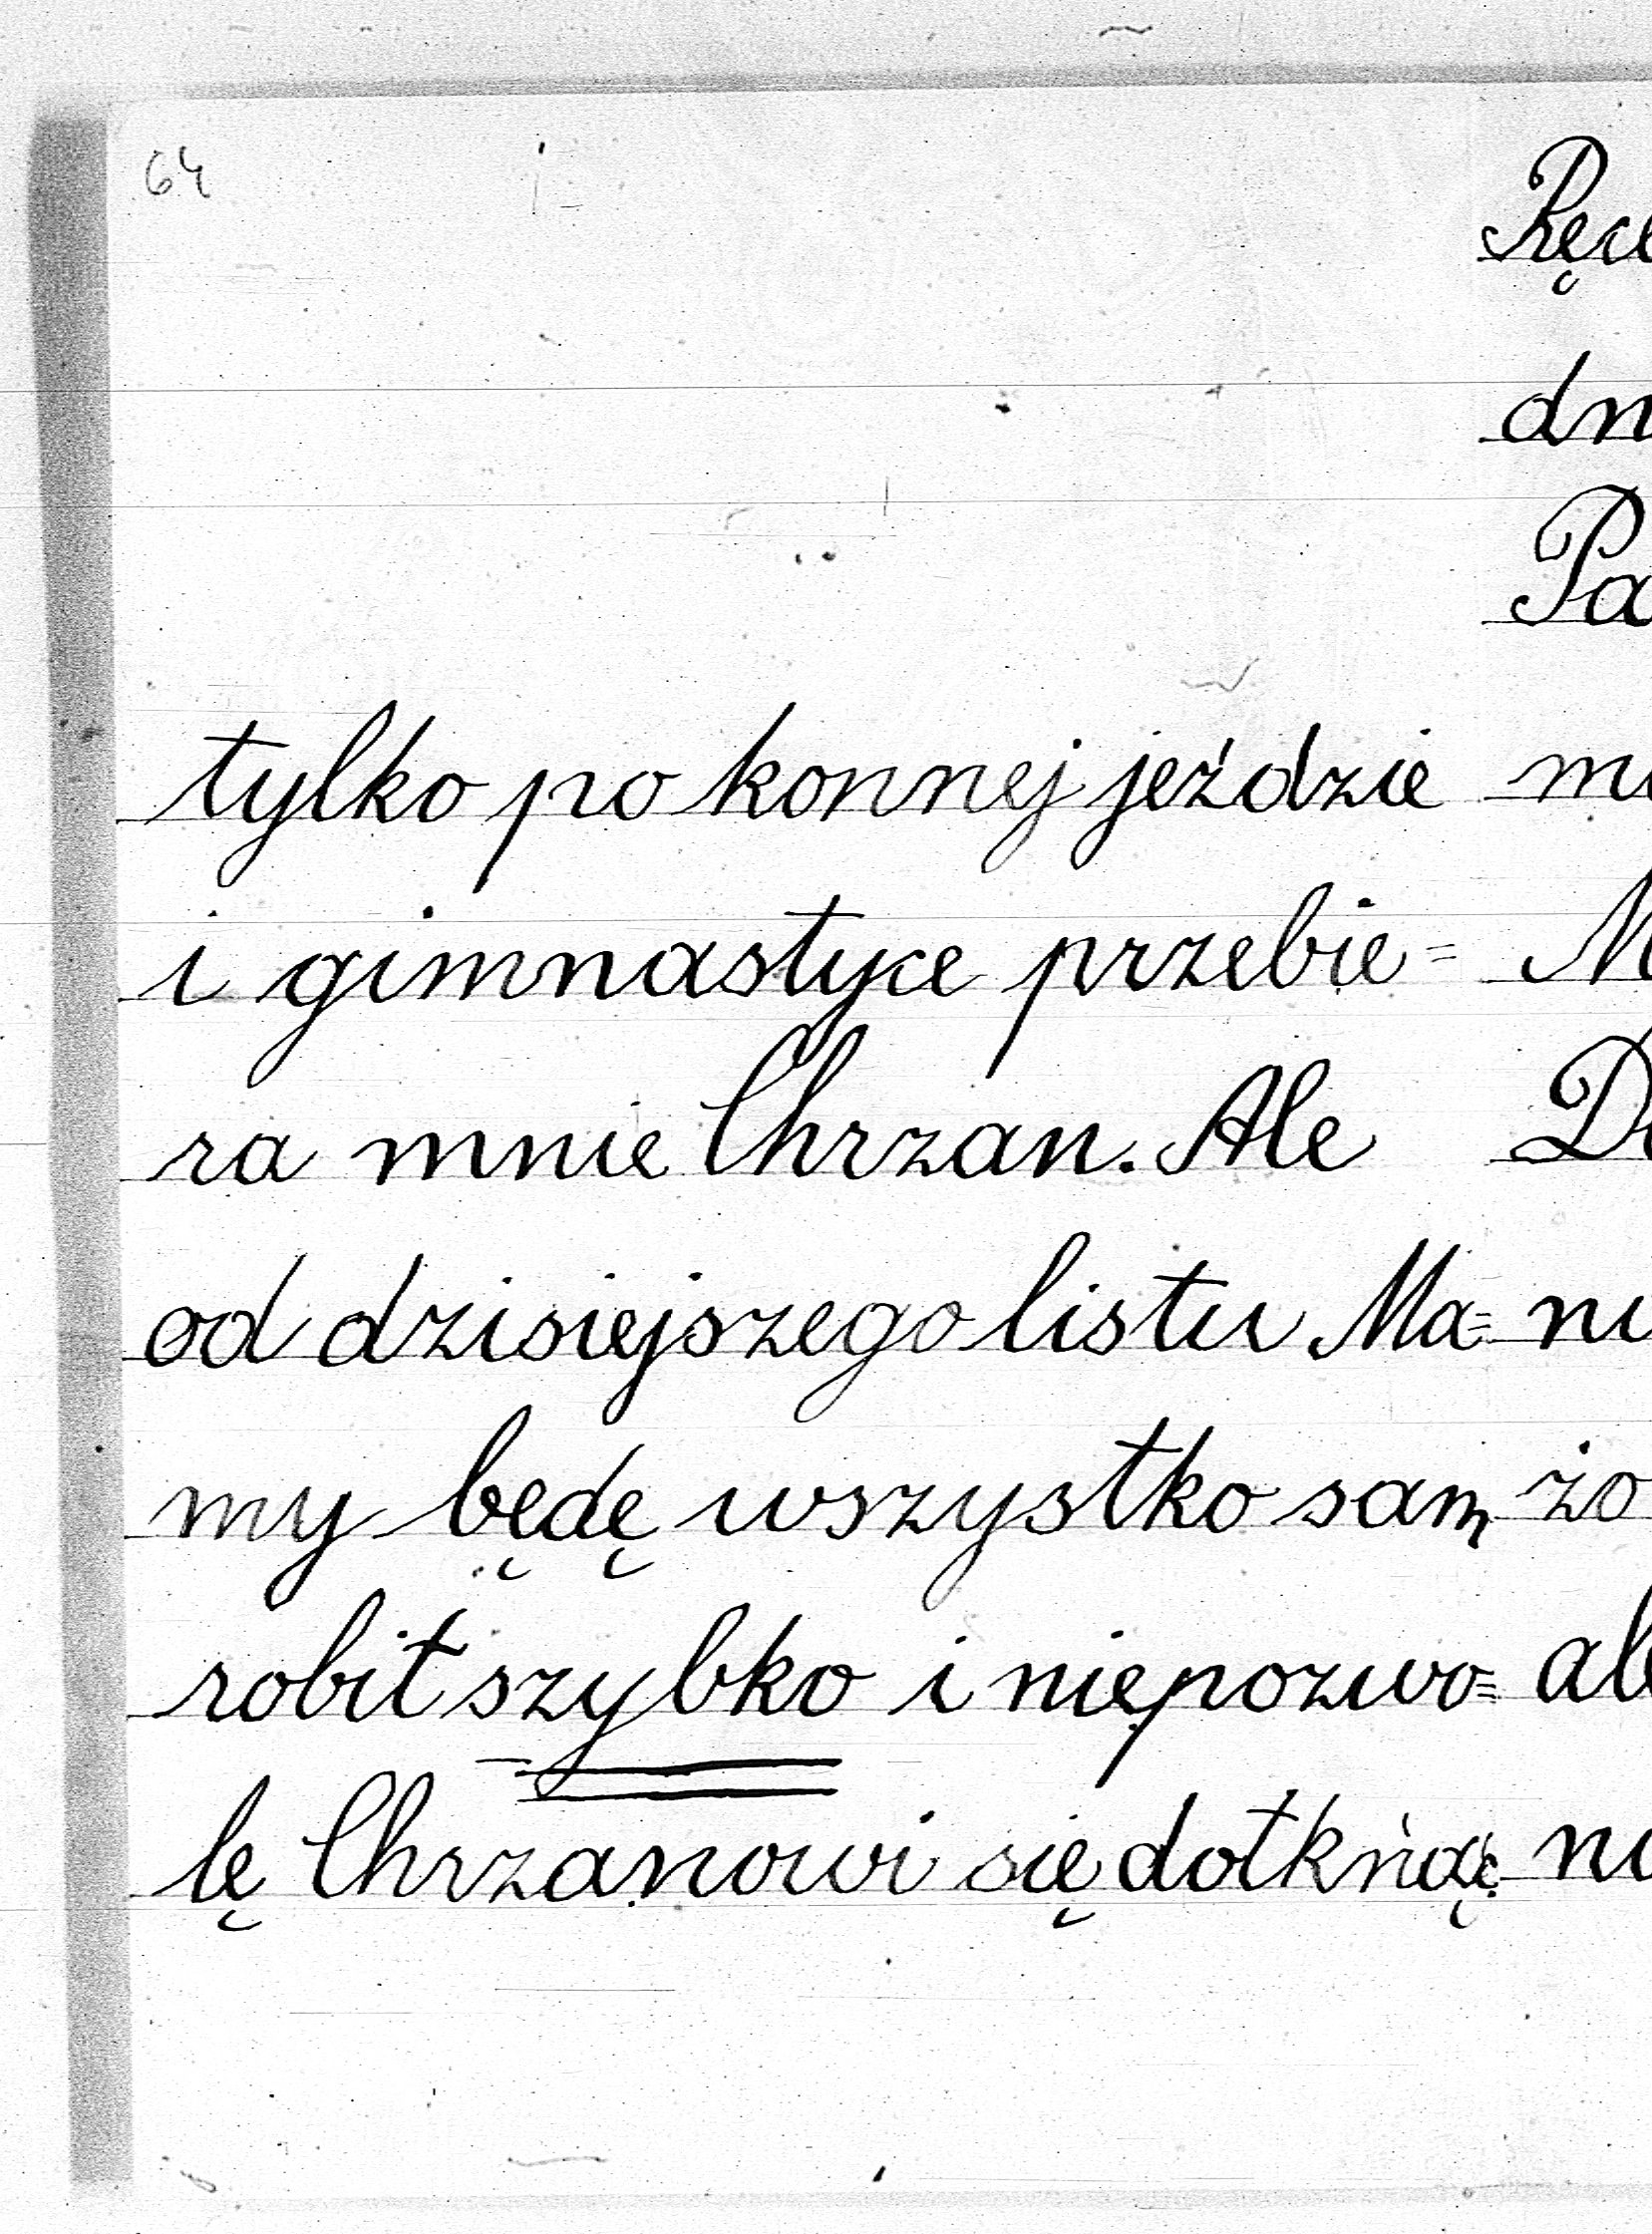 64
tylko po konnej jeździe
i gimnastyce przebie=
ra mnie Chrzan. Ale
od dzisiejszego listu Ma=
my będę wszystko sam
robił szybko i niepozwo=
lę Chrzanowi się dotknąć